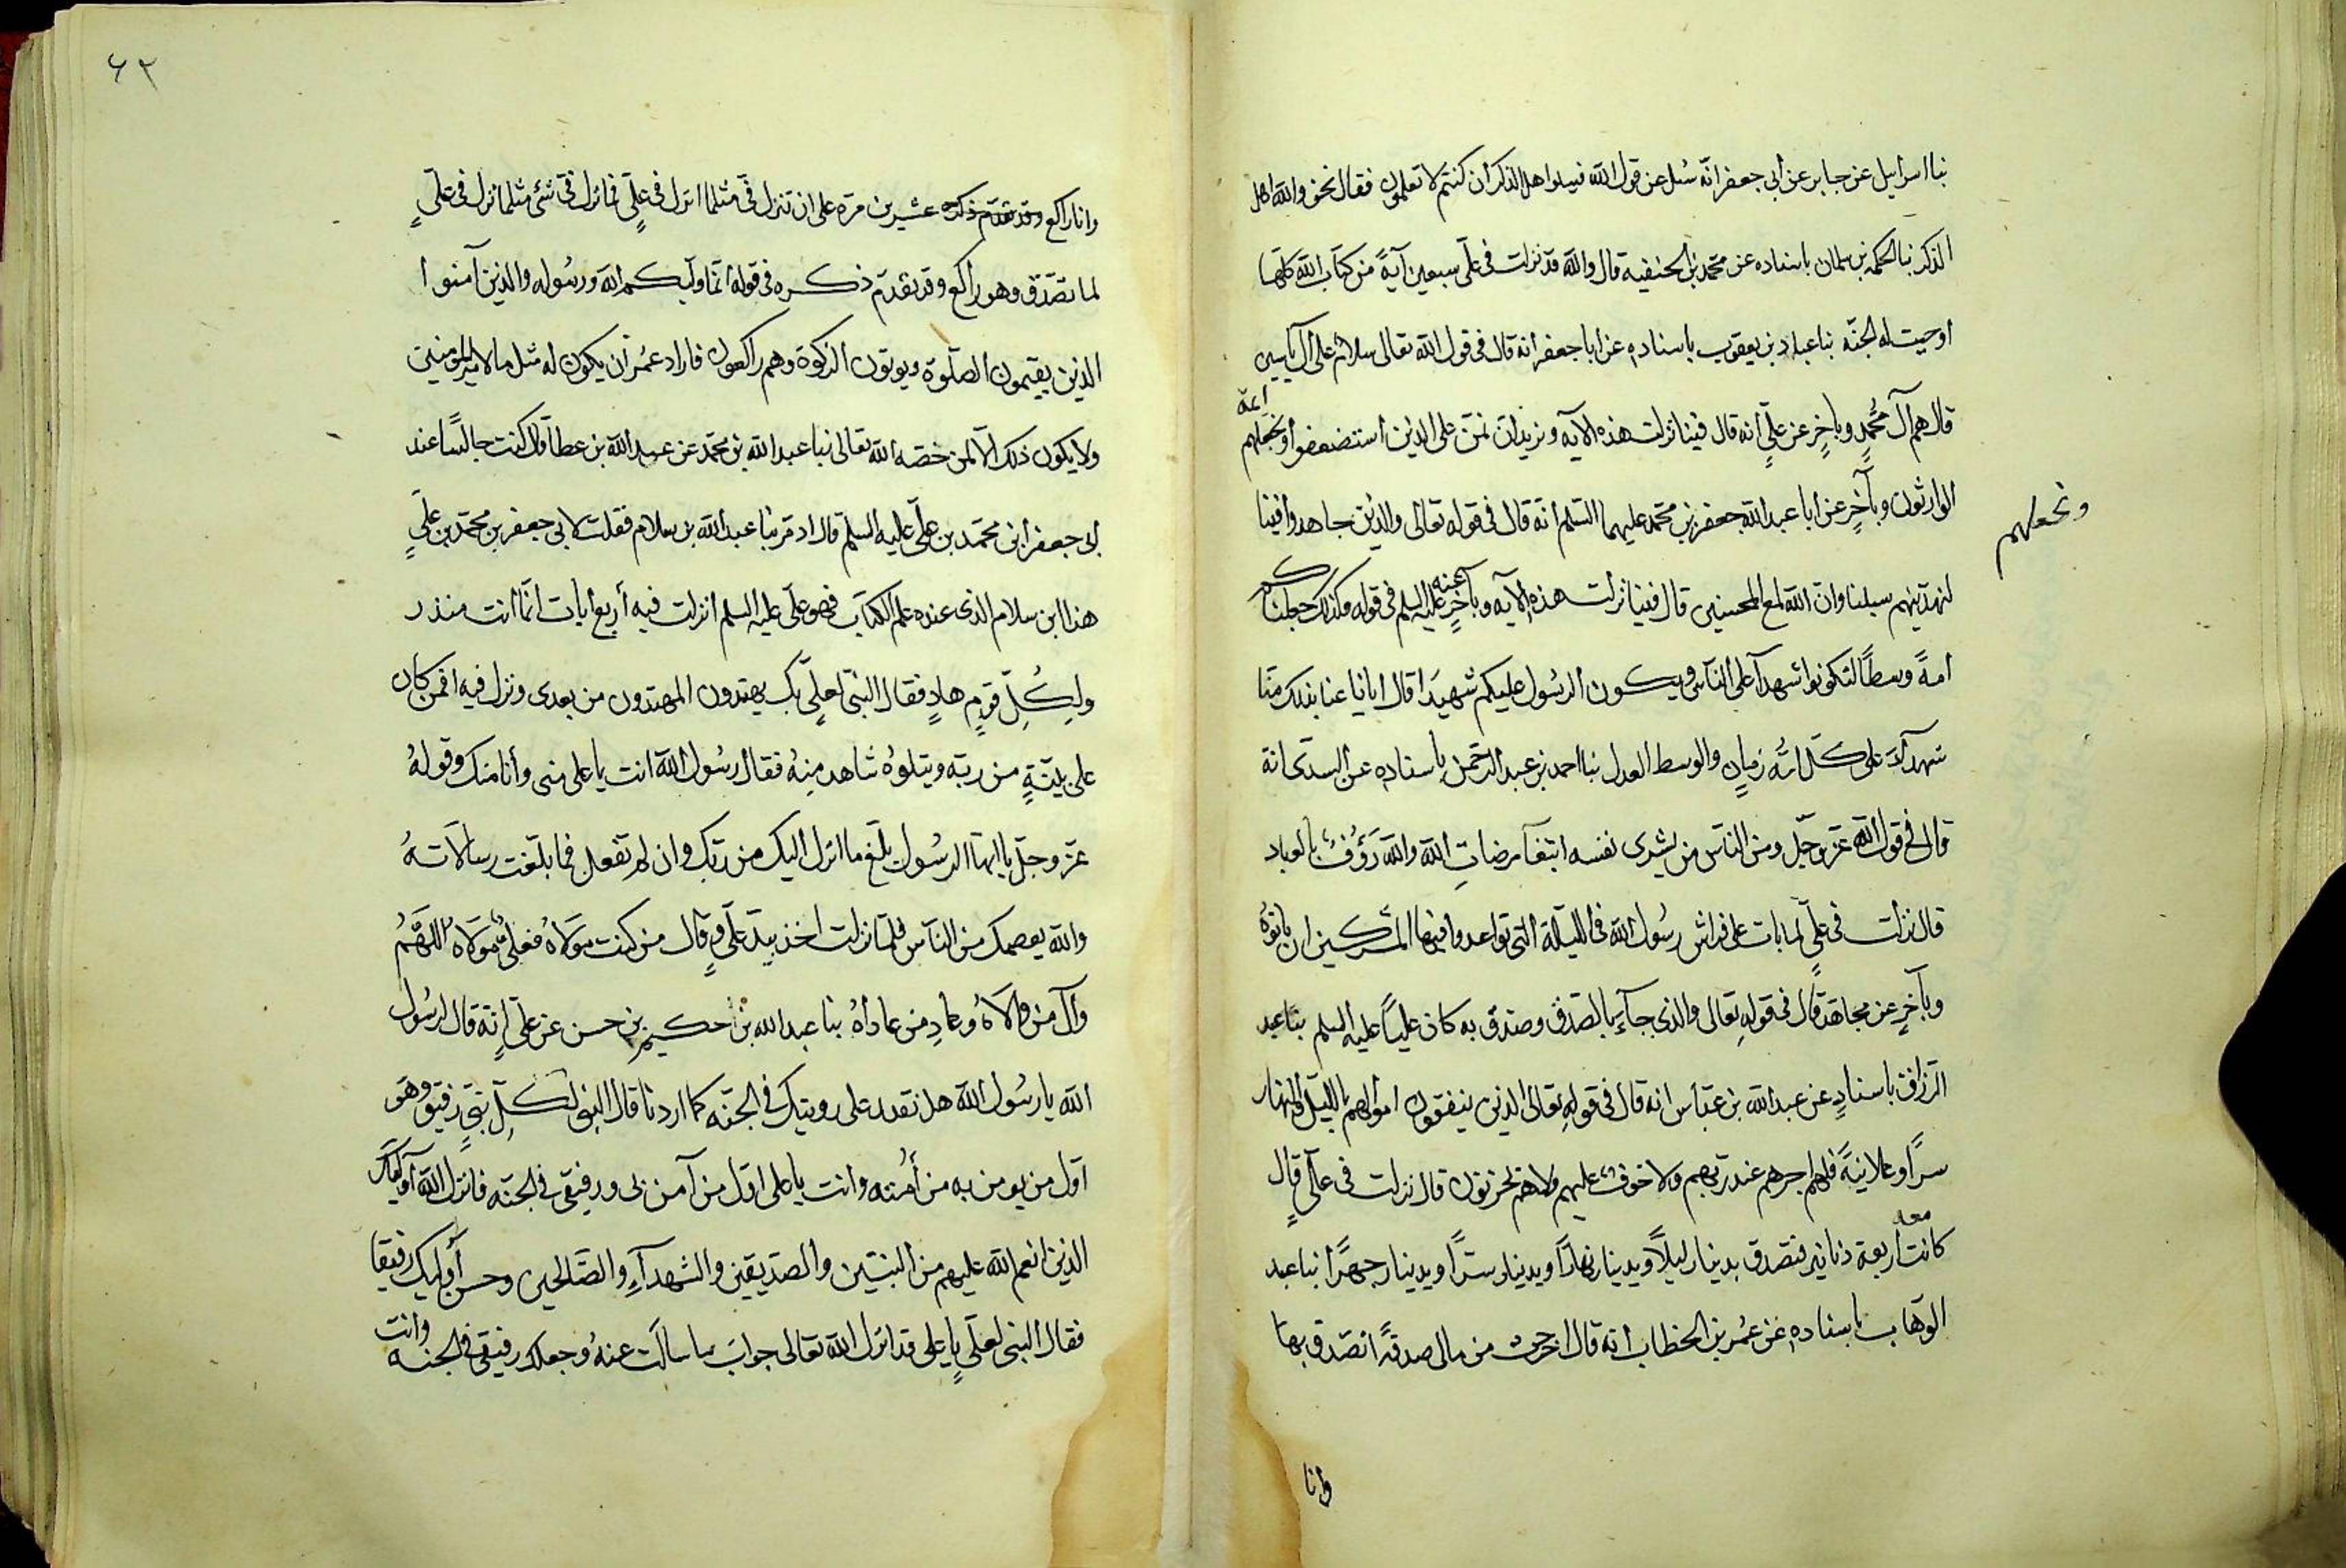 نبا اسرايل عن جابر عن أبى جعفر انّه سُئل عن قول الله فسلوا هل الذكر أن كنتم لا تعلمون فقال نحن والله اهل
الذكر نبا الحكم بن سلمان باسناده عن محمد بن الحنفيه قال والله قد نزلت فى علىّ سبعين آيةً من كتاب الله كلّها
اوجبت له الجنّة نبا عباد بن يعقوب باسناده عن ابا جعفر انه قال فى قول الله تعالى سلام على آل ياسين
قال هم آل مُحمدٍ وبآخرٍ عن علىّ انه قال فينا نزلت هذه الآيه ونريد ان نمن على الذين استضعفوا ونجعلهم ايمة
الوارثون وبآخرٍ عن أبا عبد الله جعفر بن محمد عليهما السّلم انه قال فى قوله تعالى والذين جاهدوا فينا
ونجعلهم
لنهدينهم سبلنا وان الله لمع المحسنين قال فينا نزلت هذه الآيه وبآخرٍ عنه عليه السلم فى قوله وكذلك جعلناكم
امةً وسطًا لتكونوا شهدآ على النّاس ويكون الرسُول عليكم شهيدًا قال ايانا عنا بذلك منّا
شهدآء على كلّ امّه زمانٍ والوسط العدل نبا احمد بن عبد الرحمن باسناده عن السدّى انه
قال فى قول الله عزّ وجلّ ومن النّاس من يشرى نفسه ابتغآ مرضاتِ الله والله رَؤُفٌ بالعباد
قال نزلت فى علىٍّ لما بات على فراش رسُول الله فى الليلة التى تواعدوا فيها المشركين ان ياتوهُ
وبآخرٍ عن مجاهد قال فى قولهِ تعالى والذى جآءَ بالصدق وصدّق به كان عليًا عليه السلم نبا عبد
الرّزاق باسنادٍ عن عبد الله بن عبّاس انه قال فى قولهِ تعالى الذين ينفقون اموالهم بالليل والنهار
سرًا وعلانيةً فلهم اجرهم عند ربّهم ولا خوفٌ عليهم ولاهم يحزنون قال نزلت فى علىّ قال
كانت معه أربعة دنانير فتصدق بدينار ليلًا وبدينار نهارًا وبدينار سرًا وبدينار جهرًا نبا عبد
الوهّاب باسناده عن عُمر بن الخطاب انه قال اخرجت من مالى صدقةً اتصدق بها
وانا
٦٢
وانا راكع وقد تقدم ذكره عشرين مرة على ان تنزل فىّ مثلما انزل فى علىٍّ فما نزل فىّ شئ مثلما نزل فى علىٍّ
لما تصدّق وهو راكع وقد تقدّم ذكره فى قوله انّما وليكم الله ورسُوله والذين آمنوا
الذين يقيمون الصلوة ويوتون الزكوة وهم راكعون فاراد عمُر أن يكون له مثل ما لامير المومنين
ولا يكون ذلك الّا لمن خصّه الله تعالى نبا عبد الله بن محمّد عن عبد الله بن عطا قال كنت جالسًا عند
أبى جعفر أبى محمّد بن علىّ عليه السلم قال اد مر بنا عبد الله بن سلام فقلت لابى جعفر بن محمّد بن علىٍّ
هذا ابن سلام الذى عنده علم الكتاب فهو علىّ عليه السلم انزلت فيه أربع ايات انّما انت منذر
ولِكُلِّ قومٍ هادٍ فقال النبىّ لعلىٍّ بك يهتدون المهتدون من بعدى ونزل فيه افمن كان
على بيّنةٍ من ربه ويتلوهُ شاهد منِهُ فقال رسُول الله انت يا على منى وأنا منك وقولهُ
عزّ وجلّ يا ايها الرسُول بلّغ ما انزل اليك من ربّك وان لم تفعل فما بلّغت رسالاتهُ
والله يعصمك من النّاس فلمّا نزلت اخذ بيد علىٍّ وقال من كنت مَولاهُ فعلىٌّ مَولاه اللهَّمُ
وآلِ من والاهُ وعادِ من عاداهُ نبا عبد الله بن حكيم بن حسن عن علىٍّ انّه قال لرسُول
الله يا رسُول الله هل نقدر على رويتك فى الجنّه كما اردنا قال النبى لكلِّ نبىٍّ رفيق وهَو
اوّل من يومن به من أُمته وانت يا على اوّل من آمن بى ورفيقى فى الجنّه فانزل الله أوليكَ
الذين انعم الله عليهم من النبيّين والصدّيقين والشهدآءِ والصّالحين وحسن أوليك رفيقا
فقال النبى لعلىٍّ يا على قد انزل الله تعالى جوابَ ما سالتَ عنهُ وجعلك رفيقى فى الجنه وانت